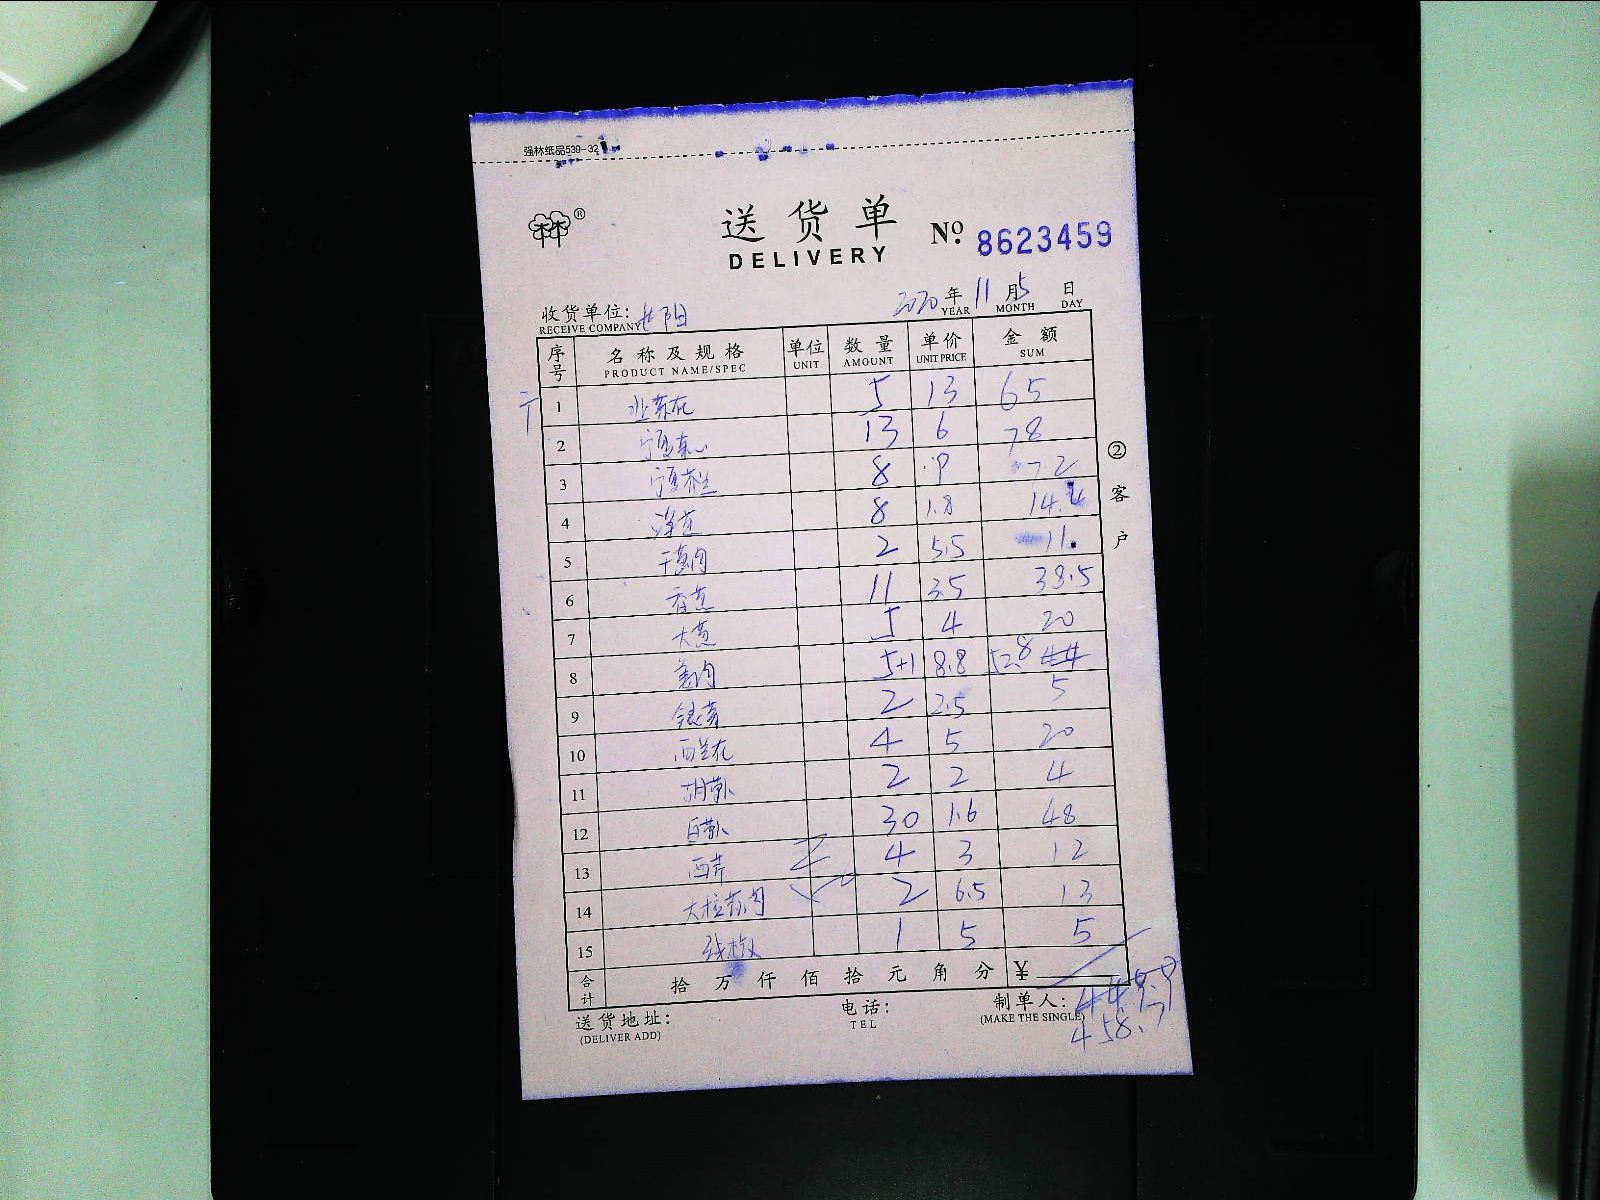 强林纸品539-32
®
送货单 No. 8623459
DELIVERY
收货单位: 2020年11月5日
RECEIVE COMPANY YEAR MONTH DAY
序号 名称及规格 单位 数量 单价 金额
PRODUCT NAME/SPEC UNIT AMOUNT UNIT PRICE SUM
1 5 13 65
2 13 6 78
3 8 9 72
4 8 1.8 14.4
5 2 5.5 11.
6 香葱 11 3.5 38.5
7 大葱 5 4 20
8 姜肉 5+1 8.8 52.8 44
9 2 2.5 5
10 西兰花 4 5 20
11 胡萝卜 2 2 4
12 白萝卜 30 1.6 48
13 西芹 4 3 12
14 2 6.5 13
15 线椒 1 5 5
合计 拾万仟佰拾元角分 ¥
送货地址: 电话: 制单人:
(DELIVER ADD) TEL (MAKE THE SINGLE)
458.7
②客户